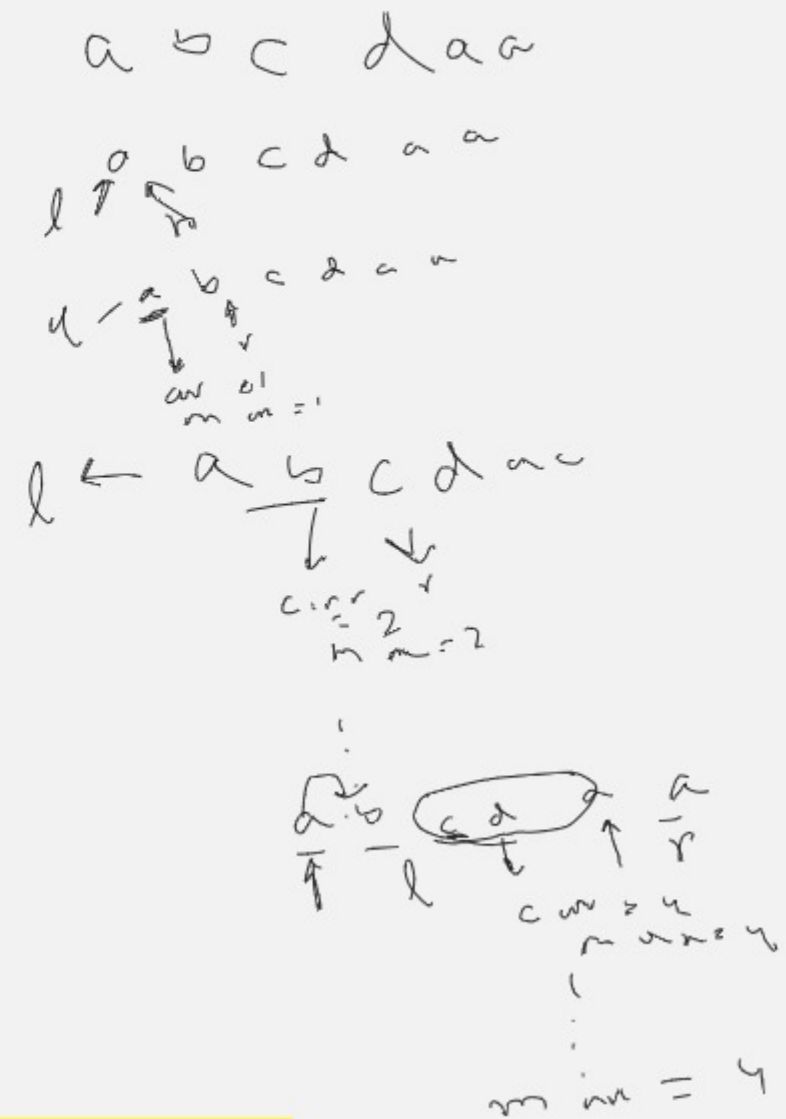 a b c d a a
a b c d a a
l r
a b c d a a
r
curr = 1
max = 1
l ← a b c d a a
r
curr
= 2
max = 2
a b c d a a
l r
curr = 4
max = 4
max = 4